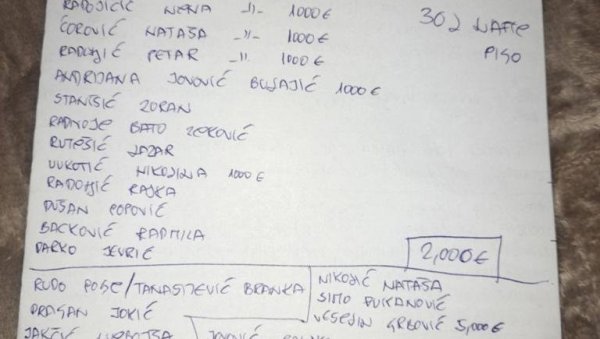 RADOJIČIĆ NENA -||- 1000€
ĆOROVIĆ NATAŠA -||- 1000€
RADOJIĆ PETAR -||- 1000€
ANDRIJANA JOVOVIĆ BUJAJIĆ 1000€
STANIŠIĆ ZORAN
RADNOJE BATO ZEKOVIĆ
RUTEŠIĆ LAZAR
VUKOTIĆ NIKOLINA 1000€
RADOJIĆ RAJKA
DUŠAN POPOVIĆ
BACKOVIĆ RADMILA
DARKO JEVRIĆ
302
PISO
2,000€
RUDO POBE/TANASIJEVIĆ BRANKA
DRAGAN JOKIĆ
NIKOLIĆ NATAŠA
SIMO VUKANOVIĆ
VESELIN GRBOVIĆ 5,000€